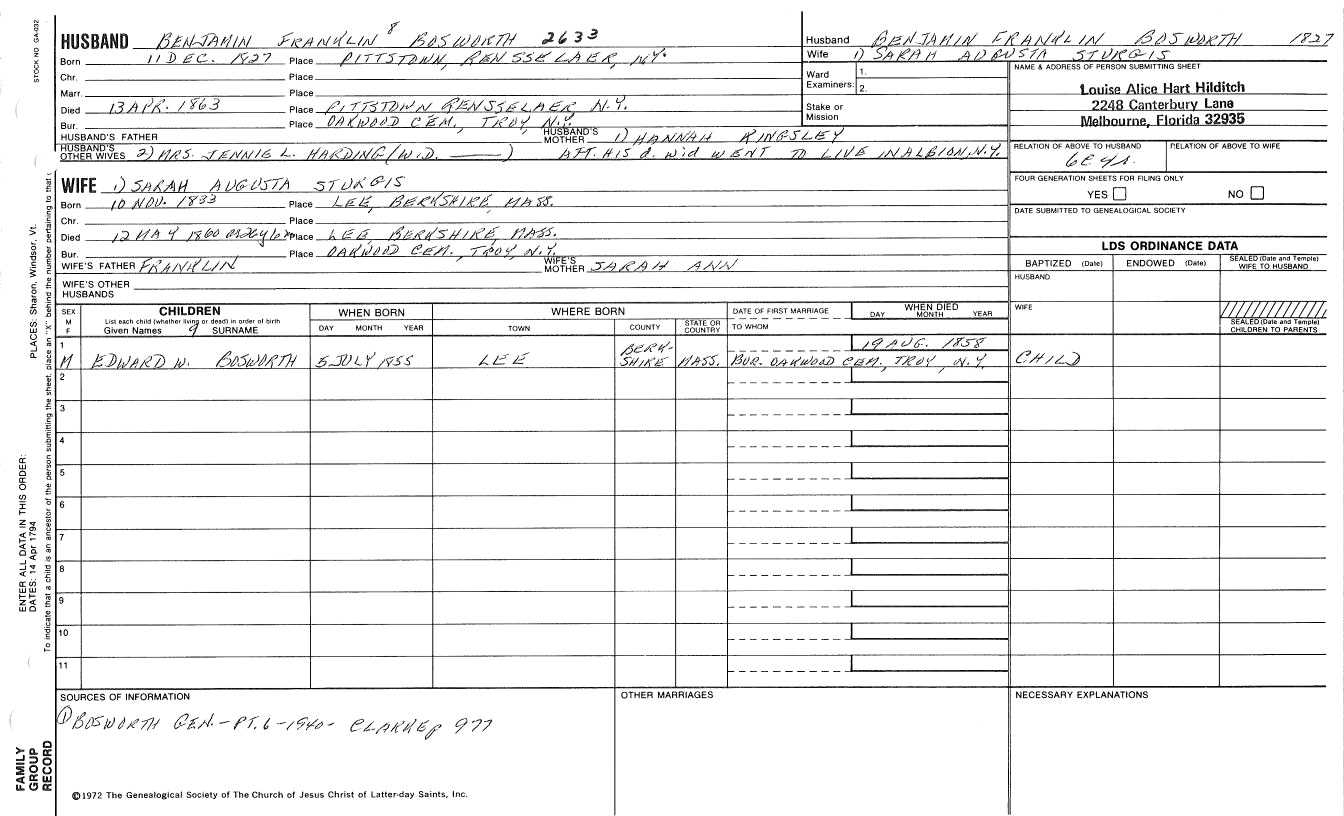 STOCK NO. GA-032
HUSBAND BENJAMIN FRANKLIN 8 BOSWORTH 2633
Born 11 DEC. 1827 Place PITTSTOWN, RENSSELAER, N.Y.
Chr. Place
Marr. Place
Died 13 APR. 1863 Place PITTSTOWN RENSSELAER, N.Y.
Bur. Place OAKWOOD CEM., TROY, N.Y.
HUSBAND'S FATHER HUSBAND'S MOTHER 1) HANNAH KINGSLEY
HUSBAND'S OTHER WIVES 2) MRS. JENNIE L. HARDING (W.D. ) AFT. HIS d. wid WENT TO LIVE IN ALBION, N.Y.
Husband BENJAMIN FRANKLIN BOSWORTH 1827
Wife 1) SARAH AUGUSTA STURGIS
Ward Examiners: 1. 2.
Stake or Mission
NAME & ADDRESS OF PERSON SUBMITTING SHEET
Louise Alice Hart Hilditch
2248 Canterbury Lane
Melbourne, Florida 32935
RELATION OF ABOVE TO HUSBAND RELATION OF ABOVE TO WIFE
FOUR GENERATION SHEETS FOR FILING ONLY
YES NO
DATE SUBMITTED TO GENEALOGICAL SOCIETY
WIFE 1) SARAH AUGUSTA STURGIS
Born 10 NOV. 1833 Place LEE, BERKSHIRE, MASS.
Chr. Place
Died 12 MAY 1860 Place LEE, BERKSHIRE, MASS.
Bur. Place OAKWOOD CEM., TROY, N.Y.
WIFE'S FATHER FRANKLIN WIFE'S MOTHER SARAH ANN
WIFE'S OTHER HUSBANDS
LDS ORDINANCE DATA
BAPTIZED (Date) ENDOWED (Date) SEALED (Date and Temple) WIFE TO HUSBAND
HUSBAND
WIFE
SEALED (Date and Temple) CHILDREN TO PARENTS
SEX M F
CHILDREN
List each child (whether living or dead) in order of birth
Given Names 9 SURNAME
WHEN BORN
DAY MONTH YEAR
WHERE BORN
TOWN COUNTY STATE OR COUNTRY
DATE OF FIRST MARRIAGE
TO WHOM
WHEN DIED
DAY MONTH YEAR
1 19 AUG. 1858
M EDWARD W. BOSWORTH 5 JULY 1855 LEE BERKSHIRE MASS. BUR. OAKWOOD CEM., TROY, N.Y. CHILD
2
3
4
5
6
7
8
9
10
11
SOURCES OF INFORMATION
① BOSWORTH GEN. - PT. 6 - 1940 - CLARKE p 977
OTHER MARRIAGES
NECESSARY EXPLANATIONS
©1972 The Genealogical Society of The Church of Jesus Christ of Latter-day Saints, Inc.
FAMILY GROUP RECORD
ENTER ALL DATA IN THIS ORDER:
DATES: 14 Apr 1794
PLACES: Sharon, Windsor, Vt.
To indicate that a child is an ancestor of the person submitting the sheet, place an "X" behind the number pertaining to that